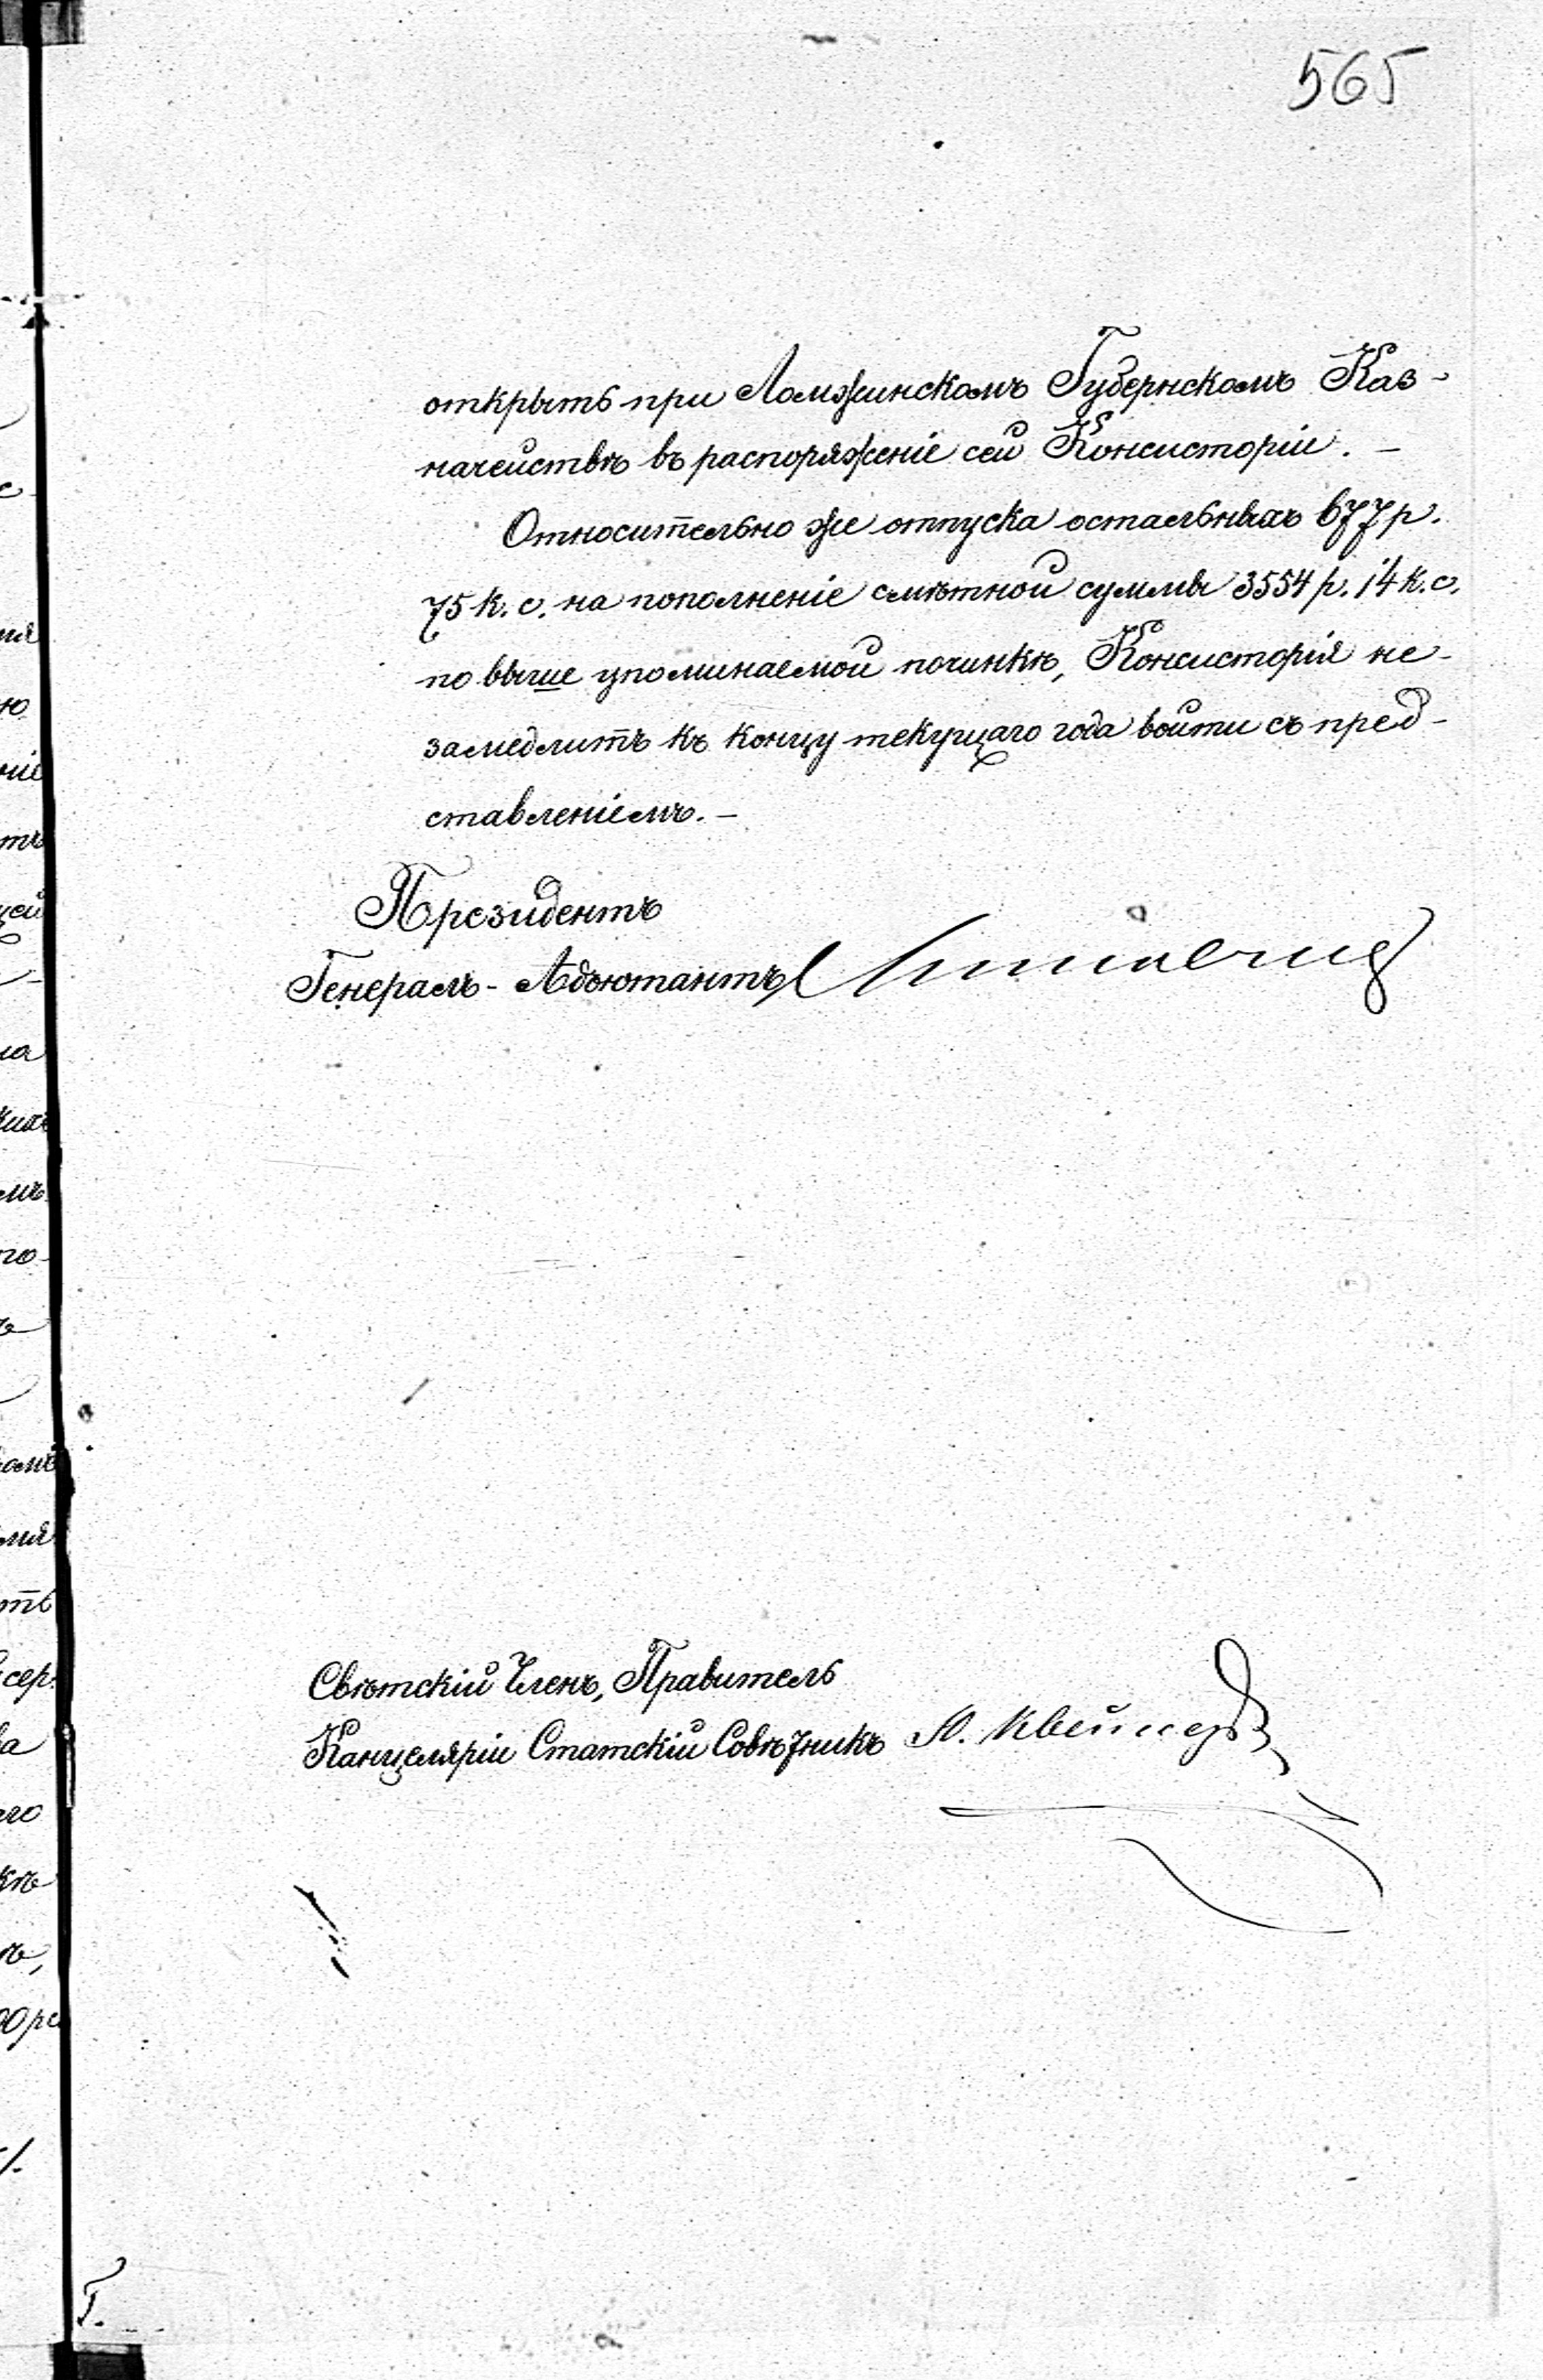 565
открыть при Ломжинскомъ Губернскомъ Каз-
начействѣ въ распоряженіе сей Консисторіи. –
Относительно же отпуска остальныхъ 677 р.
75 к. с. на пополненіе смѣтной суммы 3554 р. 14 к. с.
по выше упоминаемой починкѣ, Консисторія не-
замедлитъ къ концу текущаго года войти съ пред-
ставленіемъ. –
Президентъ
Генералъ-Адъютантъ
Свѣтскій Членъ, Правитель
Канцеляріи Статскій Совѣтникъ